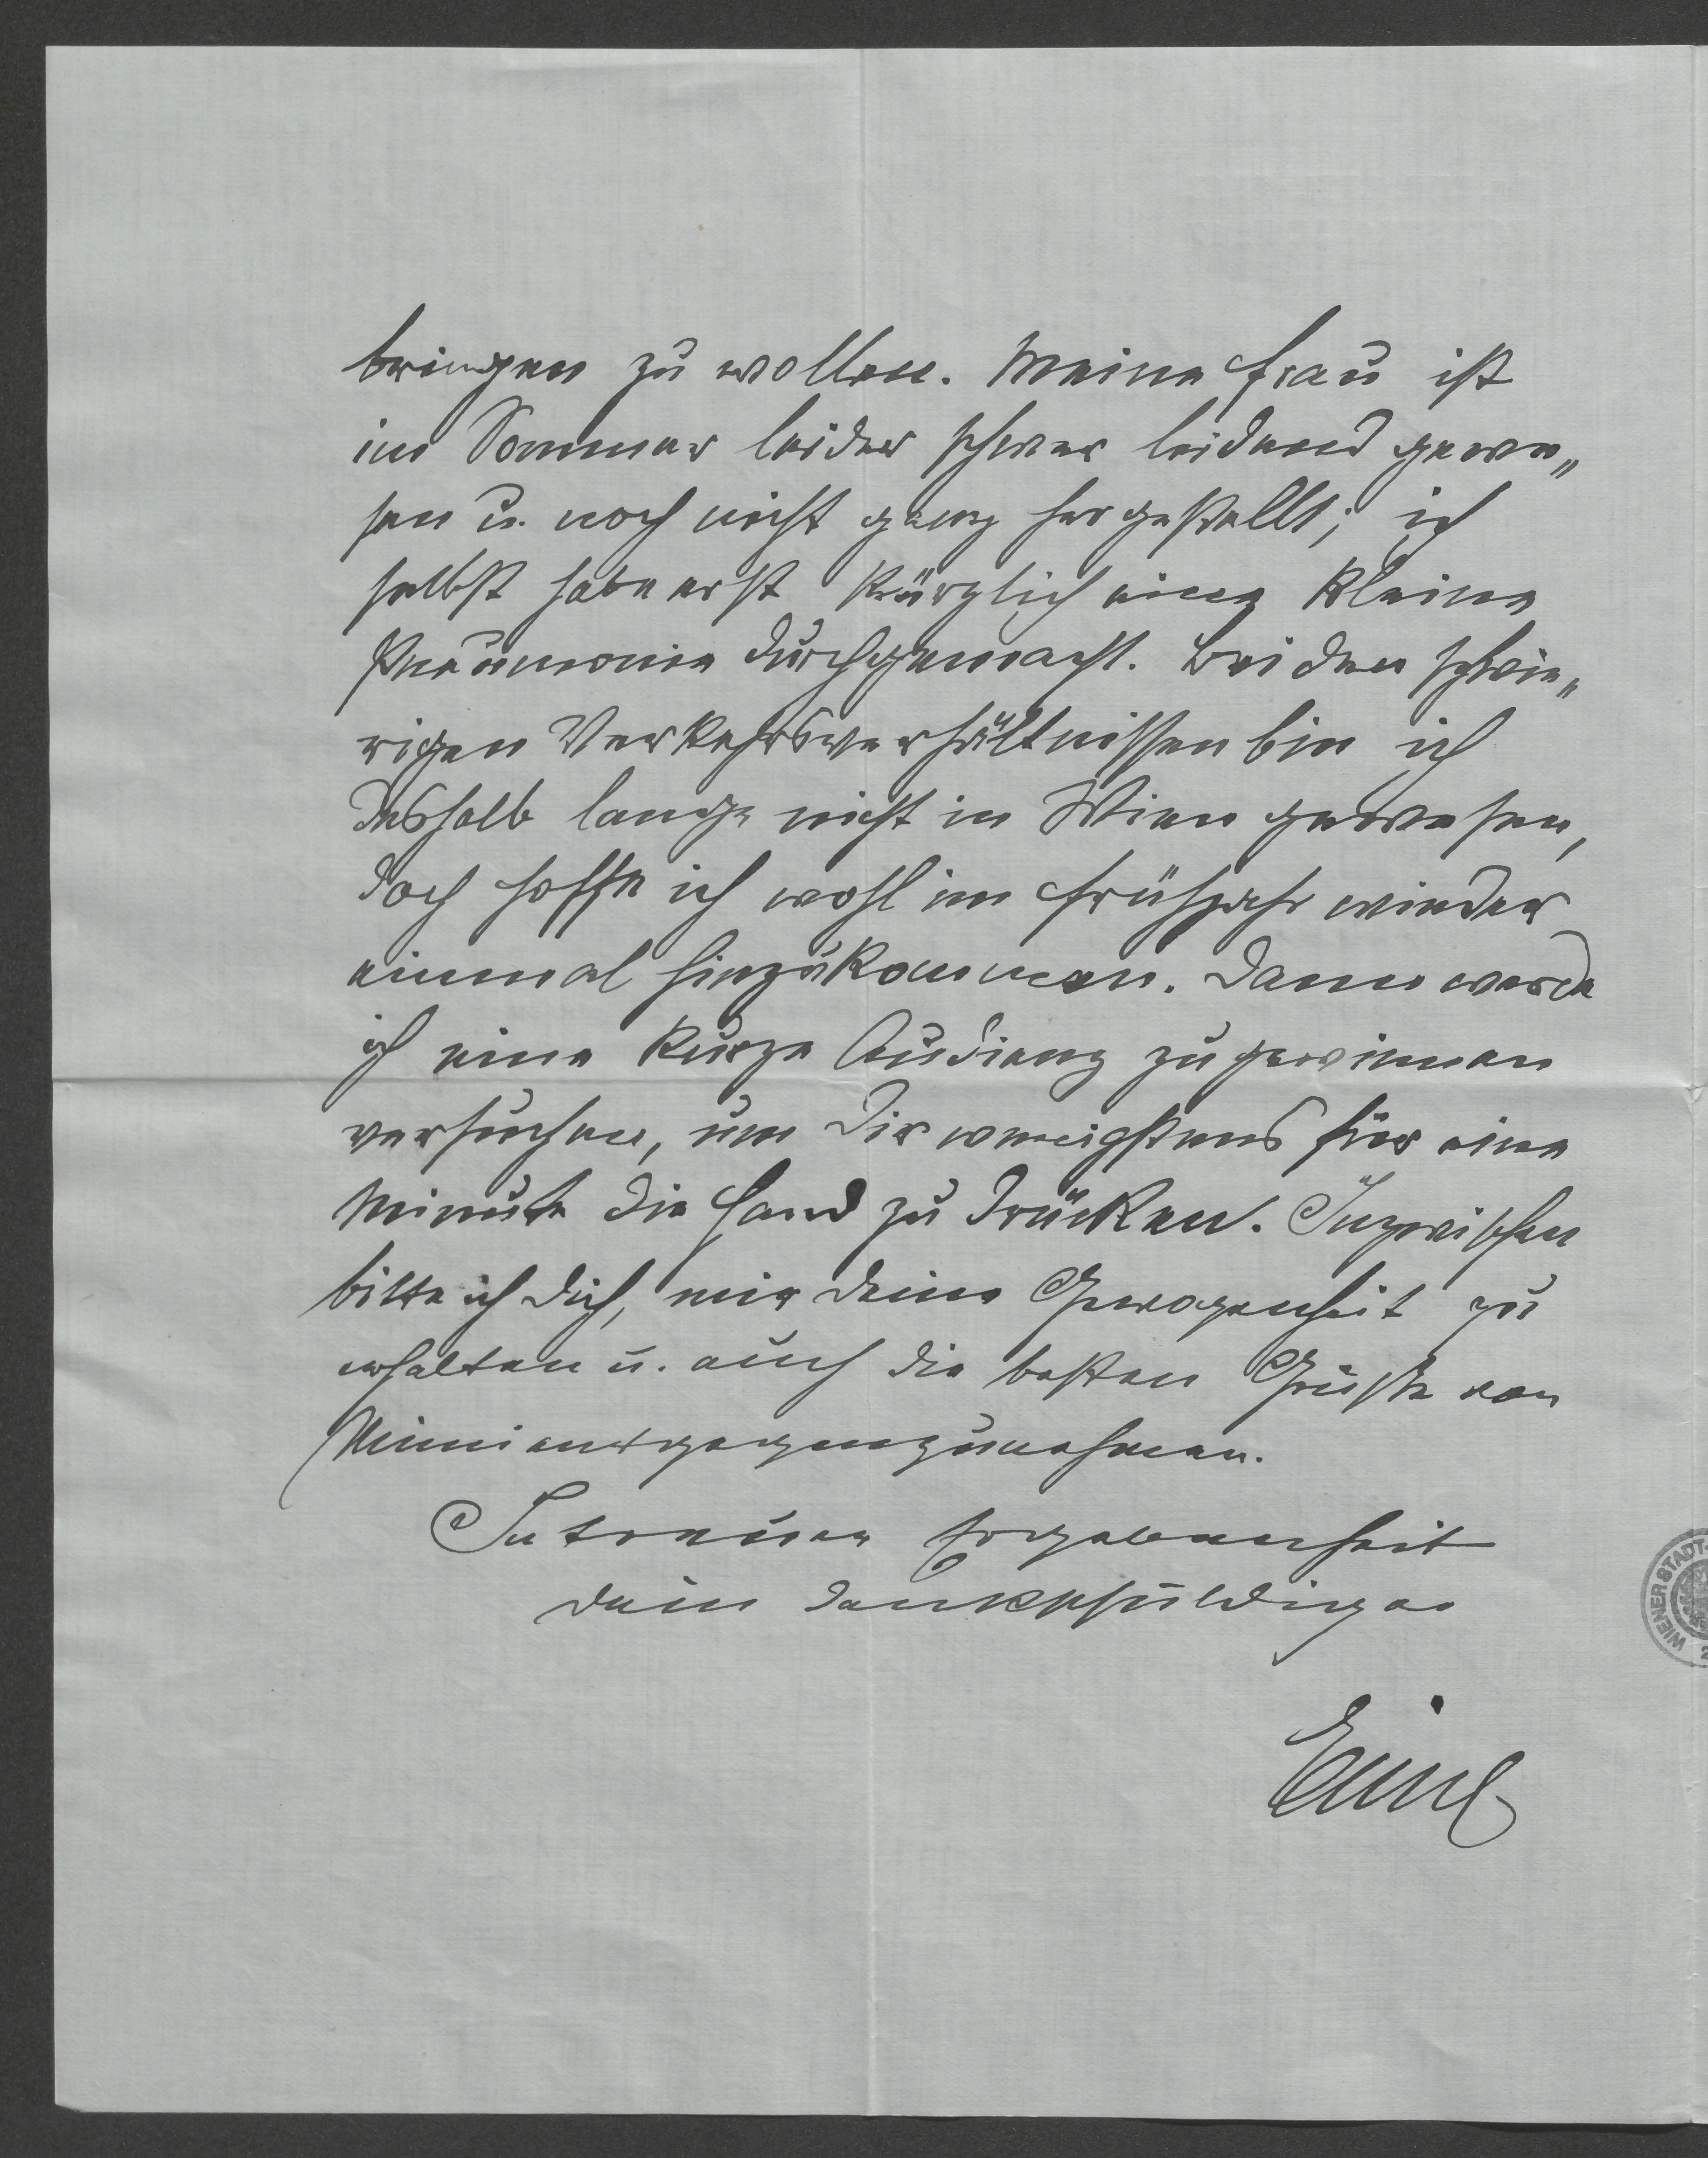 bringen zu wollen. Meine Frau ist
im Sommer leider schwer leidend gewe„
sen u. noch nicht ganz hergestellt; ich
selbst habe erst kürzlich eine kleine
Pneumonie durchgemacht. Bei den schwie„
rigen Verkehrsverhältnissen bin ich
deshalb lange nicht in Wien gewesen,
doch hoffe ich wohl im Frühjahr wieder
einmal hinzukommen. Dann werde
ich eine kurze Audienz zu gewinnen
versuchen, um Dir wenigstens für eine
Minute die Hand zu drücken. Inzwischen
bitte ich Dich, mir Deine Gewogenheit zu
erhalten u. auch die besten Grüße von
Minni entgegenzunehmen.
In treuer Ergebenheit
Dein dankschuldiger
Emil
WIENER STADT-